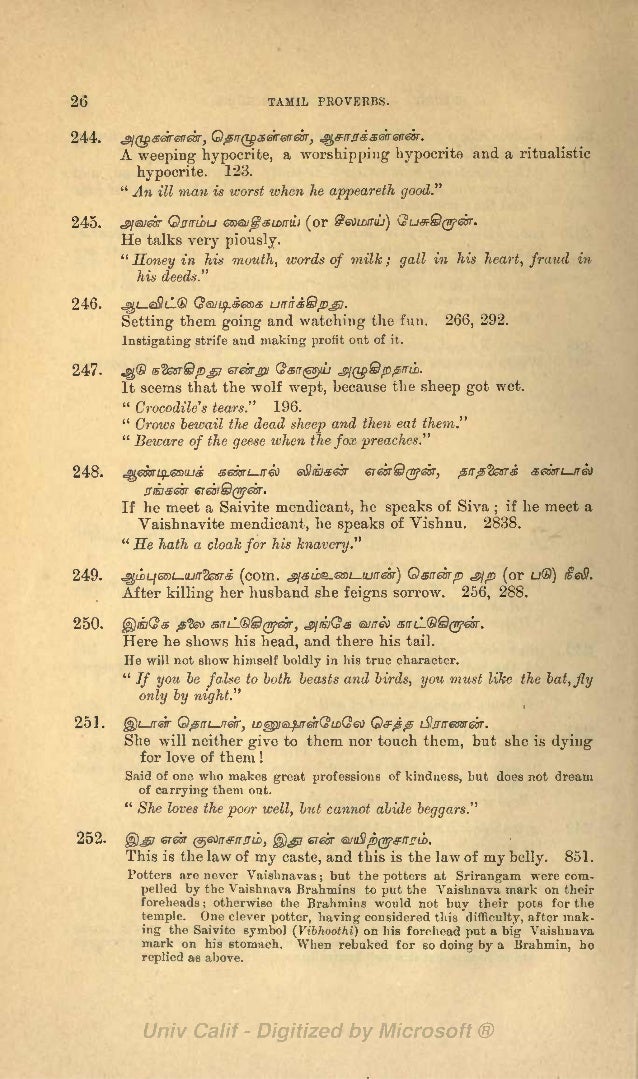 26 TAMIL PROVERBS.
244. அழுகள்ளன், தொழுகள்ளன், ஆசாரக்கள்ளன்.
A weeping hypocrite, a worshipping hypocrite and a ritualistic
hypocrite. 123.
“An ill man is worst when he appeareth good.”
245. அவன் ரொம்ப வைதீகமாய் (or சீலமாய்) பேசுகிறான்.
He talks very piously.
“Honey in his mouth, words of milk; gall in his heart, fraud in
his deeds.”
246. ஆடவிட்டு வேடிக்கை பார்க்கிறது.
Setting them going and watching the fun. 266, 292.
Instigating strife and making profit out of it.
247. ஆடு நனைகிறது என்று கோனாய் அழுகிறதாம்.
It seems that the wolf wept, because the sheep got wet.
“Crocodile's tears.” 196.
“Crows bewail the dead sheep and then eat them.”
“Beware of the geese when the fox preaches.”
248. ஆண்டியைக் கண்டால் லிங்கன் என்கிறான், தாதனைக் கண்டால்
ரங்கன் என்கிறான்.
If he meet a Saivite mendicant, he speaks of Siva; if he meet a
Vaishnavite mendicant, he speaks of Vishnu. 2838.
“He hath a cloak for his knavery.”
249. ஆம்புடையானைக் (com. அகம்உடையான்) கொன்ற அற (or படு) நீலி.
After killing her husband she feigns sorrow. 256, 288.
250. இங்கே தலை காட்டுகிறான், அங்கே வால் காட்டுகிறான்.
Here he shows his head, and there his tail.
He will not show himself boldly in his true character.
“If you be false to both beasts and birds, you must like the bat, fly
only by night.”
251. இடாள் தொடாள், மனுஷாள்மேலே செத்த பிராணன்.
She will neither give to them nor touch them, but she is dying
for love of them!
Said of one who makes great professions of kindness, but does not dream
of carrying them out.
“She loves the poor well, but cannot abide beggars.”
252. இது என் குலாசாரம், இது என் வயிற்றாசாரம்.
This is the law of my caste, and this is the law of my belly. 851.
Potters are never Vaishnavas; but the potters at Srirangam were com-
pelled by the Vaishnava Brahmins to put the Vaishnava mark on their
foreheads; otherwise the Brahmins would not buy their pots for the
temple. One clever potter, having considered this difficulty, after mak-
ing the Saivite symbol (Vibhoothi) on his forehead put a big Vaishnava
mark on his stomach. When rebuked for so doing by a Brahmin, he
replied as above.
Univ Calif - Digitized by Microsoft ®